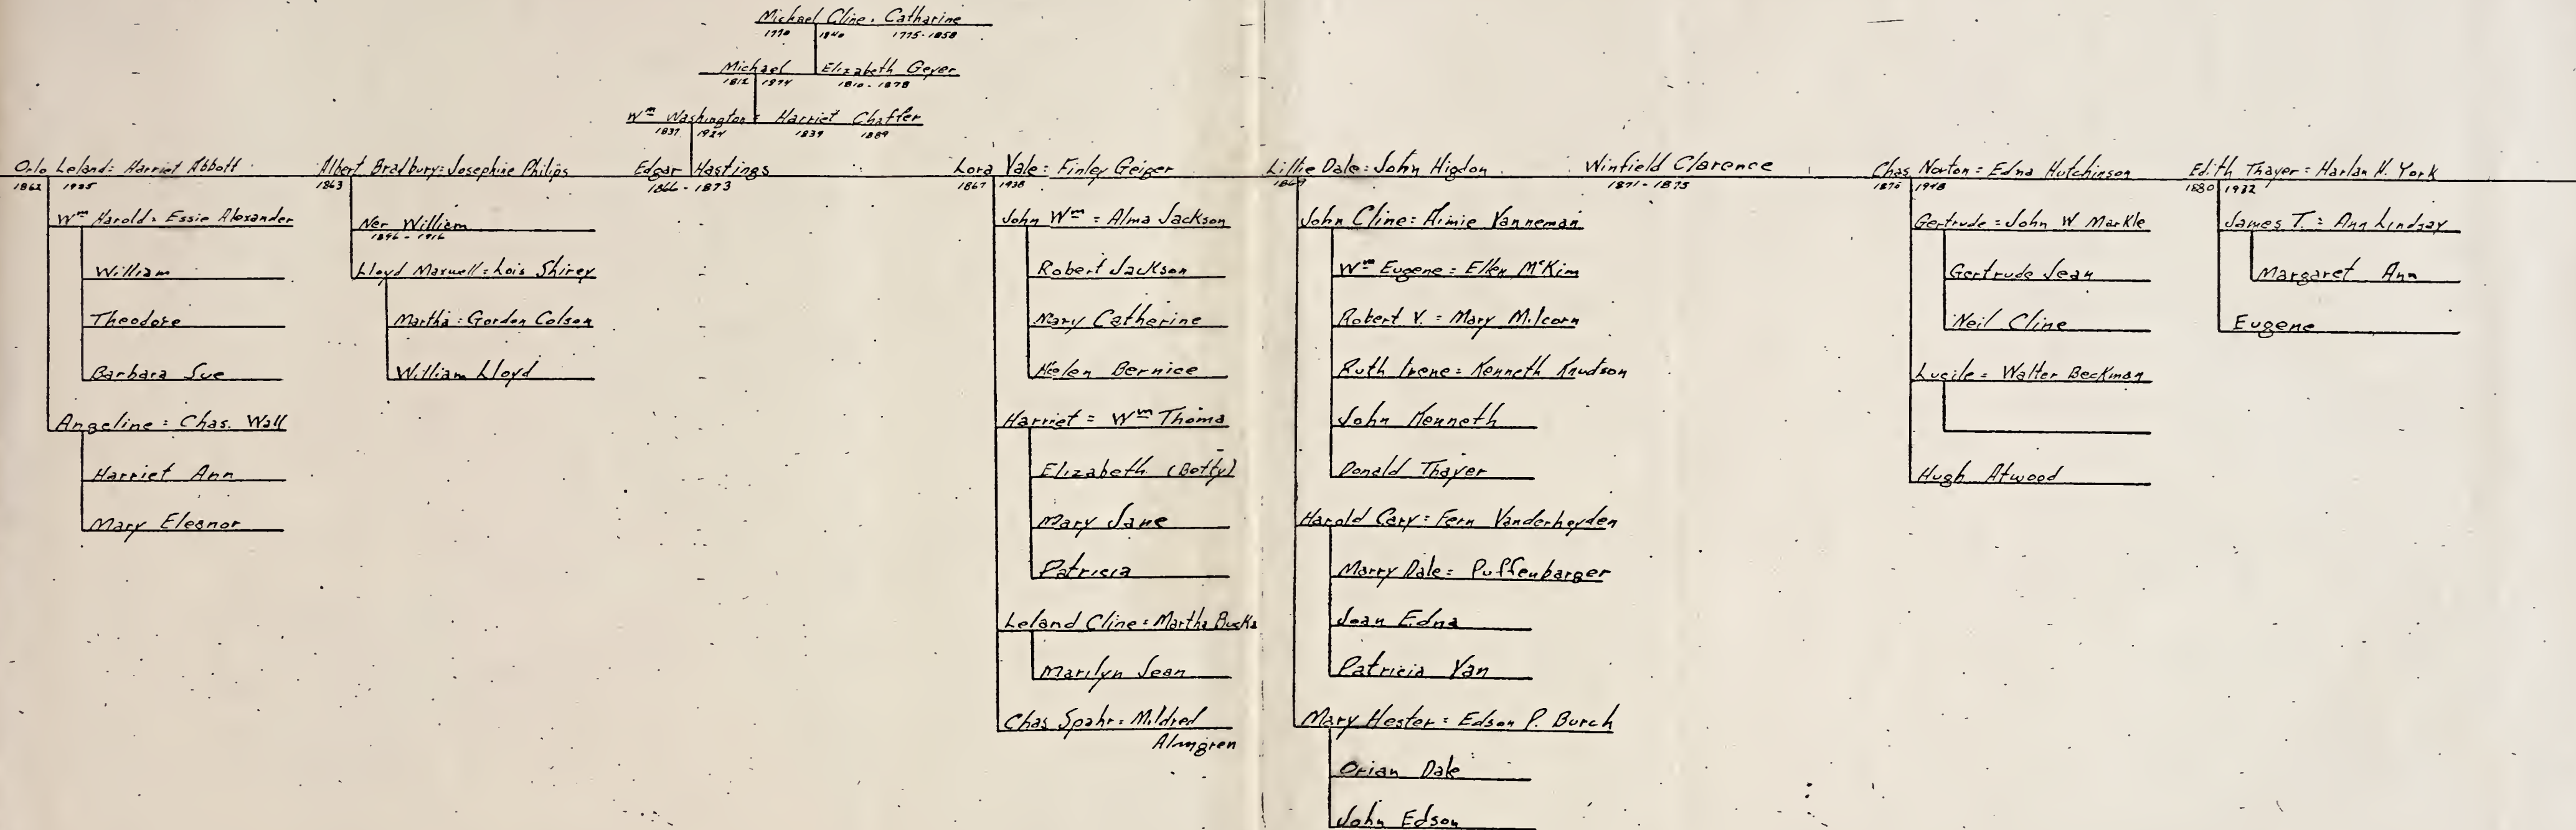 Michael Cline = Catharine
1770 1840 1775-1858
Michael Elizabeth Geyer
1812 1874 1810-1878
Wm Washington = Harriet Chaffer
1837 1924 1839 1889
Orlo Leland = Harriet Abbott
1862
Wm Harold = Essie Alexander
William
Theodore
Barbara Sue
Angeline = Chas. Wall
Harriet Ann
Mary Eleanor
Albert Bradbury = Josephine Philips
1863
Ner William
1896-1916
Lloyd Maxwell = Lois Shirey
Martha = Gordon Colson
William Lloyd
Edgar Hastings
1866-1873
Lora Vale = Finley Geiger
1867 1938
John Wm = Alma Jackson
Robert Jackson
Mary Catherine
Helen Bernice
Harriet = Wm Thoma
Elizabeth (Betty)
Mary Jane
Patricia
Leland Cline = Martha
Marilyn Jean
Chas Spahr = Mildred
Almgren
Lillie Dale = John Higdon
1869
John Cline = Aimie Vanneman
Wm Eugene = Ellen McKim
Robert V. = Mary Milcorn
Ruth Irene = Kenneth Knudson
John Kenneth
Donald Thayer
Harold Cary = Fern Vanderheyden
Marry Dale = Puffenbarger
Jean Edna
Patricia Van
Mary Hester = Edson P. Burch
Orian Dale
John Edson
Winfield Clarence
1871-1875
Chas Norton = Edna Hutchinson
1948
Gertrude = John W Markle
Gertrude Jean
Neil Cline
Lucile = Walter Beckman
Hugh Atwood
Edith Thayer = Harlan H. York
1880 1932
James T. = Ann Lindsay
Margaret Ann
Eugene